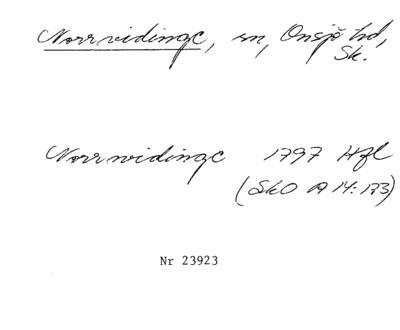 Norrvidinge, sn, Onsjö hd,
Sk.
Norrwidinge 1797 Hfl
(SkO A 14:173)
Nr 23923